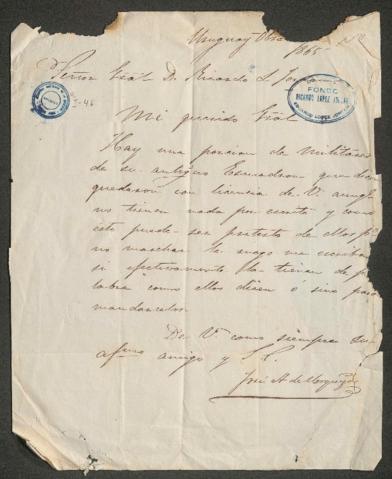 Uruguay
1865
Señor Gral Dn Ricardo L
FONDO
RICARDO LOPEZ
46
Mi querido Gral
Hay una porcion de militares
de su antiguo Escuadron que
quedaron con licencia de V.
no tienen nada por escrito y como
esto puede ser pretesto de ellos
no marchar le ruego me escriba
si efectivamente la tienen de pa
labra como ellos dicen ó sino para
mandarlos
De V. como siempre su
afmo amigo y S. S.
José A. de Urquiza